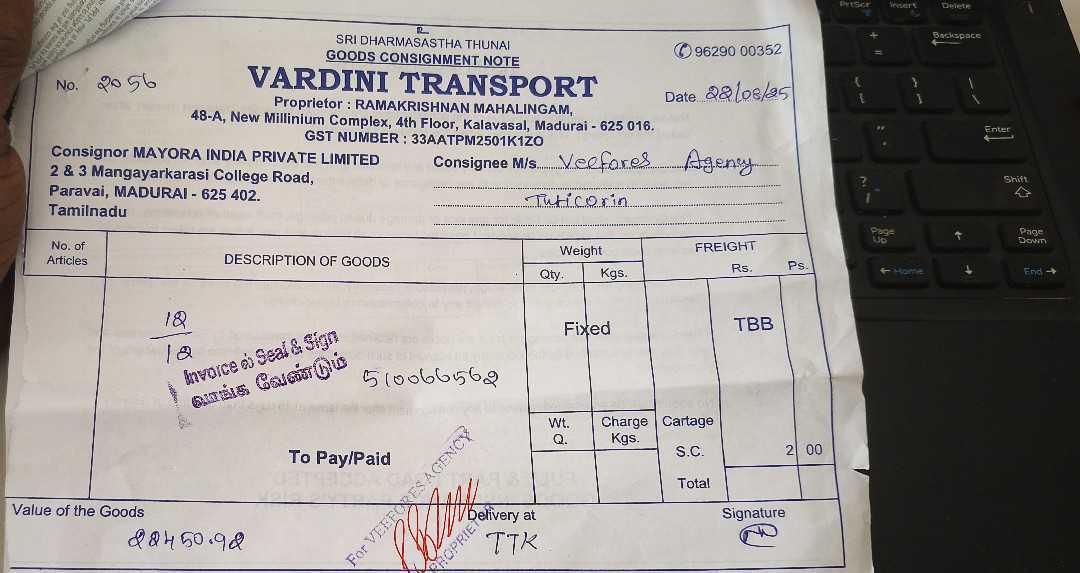 SRI DHARMASASTHA THUNAI
GOODS CONSIGNMENT NOTE
✆ 96290 00352
No. 2056
VARDINI TRANSPORT
Date 22/08/25
Proprietor : RAMAKRISHNAN MAHALINGAM,
48-A, New Millinium Complex, 4th Floor, Kalavasal, Madurai - 625 016.
GST NUMBER : 33AATPM2501K1ZO
Consignor MAYORA INDIA PRIVATE LIMITED
2 & 3 Mangayarkarasi College Road,
Paravai, MADURAI - 625 402.
Tamilnadu
Consignee M/s. Veefores Agency
Tuticorin
No. of Articles
DESCRIPTION OF GOODS
Weight
Qty. Kgs.
FREIGHT
Rs. Ps.
12
12
Invoice ல் Seal & Sign
வாங்க வேண்டும்
510066562
Fixed
TBB
Wt. Q.
Charge Kgs.
Cartage
S.C. 2 00
Total
To Pay/Paid
For VEEFORES AGENCY
PROPRIETOR
Value of the Goods
22450.92
Delivery at
TTK
Signature
PrtScr Insert Delete
+ =
Backspace
{ [ } ] | \
" '
Enter
? /
Shift
Page Up ↑ Page Down
← Home ↓ End →